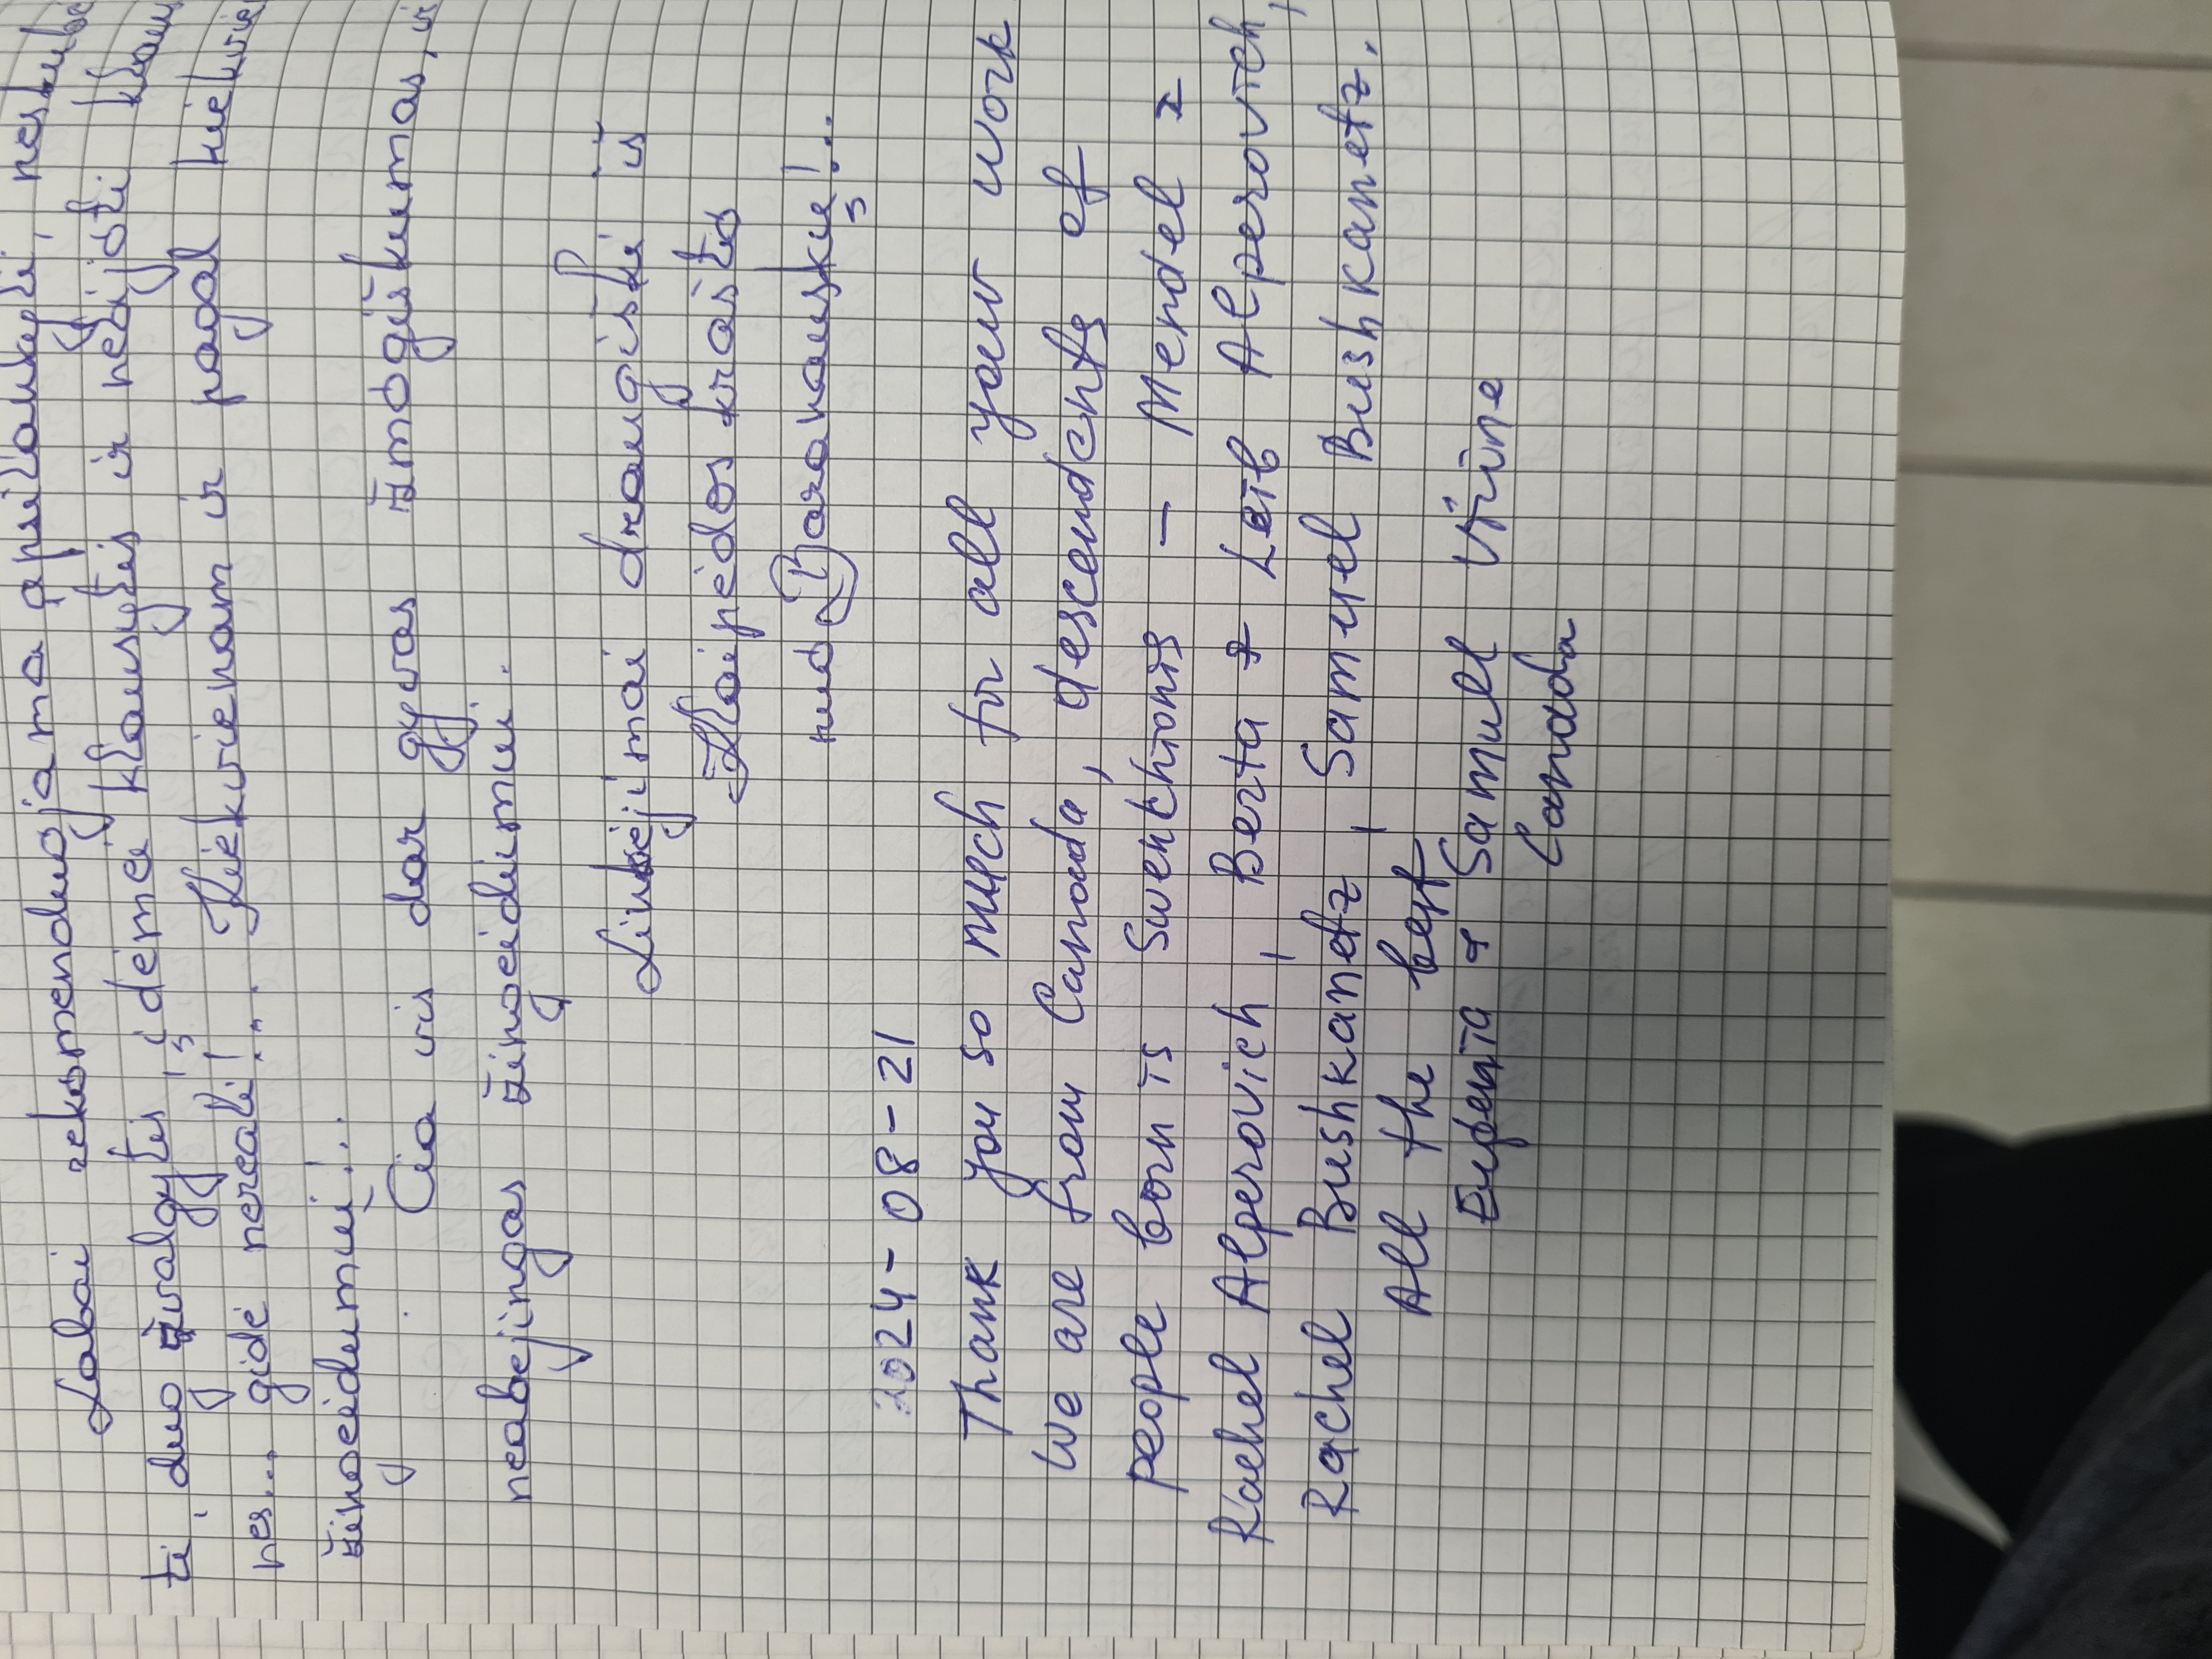 Labai rekomenduojama apsilankyti, neskubė
ti, duo žvalgytis, įdėmei klausytis ir nebijoti klau
nes... gidė nereali!... Kiekvienam ir pagal kiekvie
žingeidumui!..
Čia vis dar gyvas žmogiškumas, ir
neabejingas žingeidumui.
Linkėjimai draugiški iš
Klaipėdos krašto
nuo Baranauskų!..
2024-08-21
Thank you so much for all your work
We are from Canada, descendents of
people born is Swenchionis - Mendel &
Rachel Alperovich, Berta & Leib Alperovitch,
Rachel Bushkanetz, Samuel Bushkanetz.
All the best
& Samuel
Canada